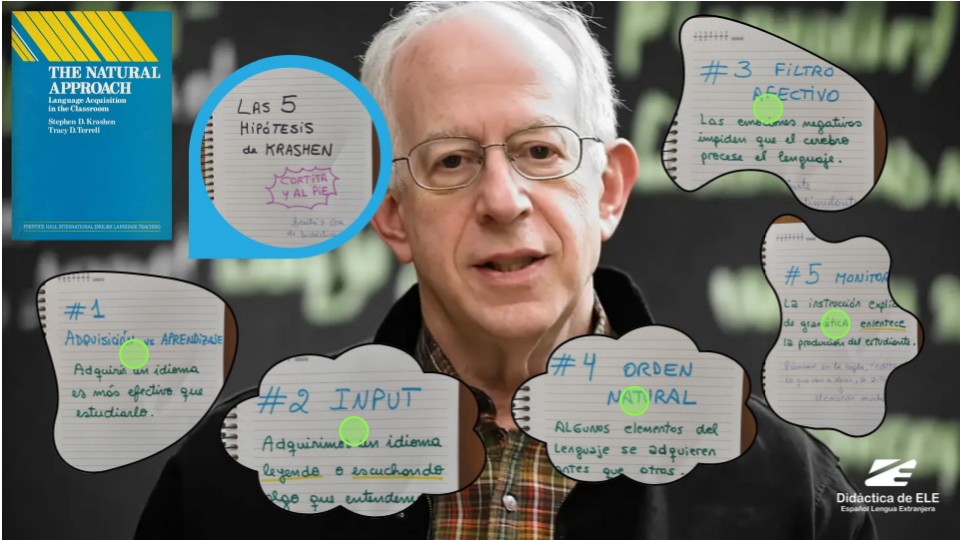 THE NATURAL
APPROACH
Language Acquisition
in the Classroom
Stephen D. Krashen
Tracy D. Terrell
PRENTICE HALL INTERNATIONAL ENGLISH LANGUAGE TEACHING
LAS 5
HIPÓTESIS
de KRASHEN
CORTITA
Y AL PIE
#1
ADQUISICIÓN vs APRENDIZAJE
Adquirir un idioma
es más efectivo que
estudiarlo.
#2 INPUT
Adquirimos un idioma
leyendo o escuchando
algo que entendem
#3 FILTRO
AFECTIVO
Las emociones negativas
impiden que el cerebro
procese el lenguaje.
#4 ORDEN
NATURAL
ALGUNOS elementos del
Lenguaje se adquieren
antes que otros.
#5 MONITOR
La instrucción explíc
de gramática enlentece
la producción del estudiante.
Didáctica de ELE
Español Lengua Extranjera